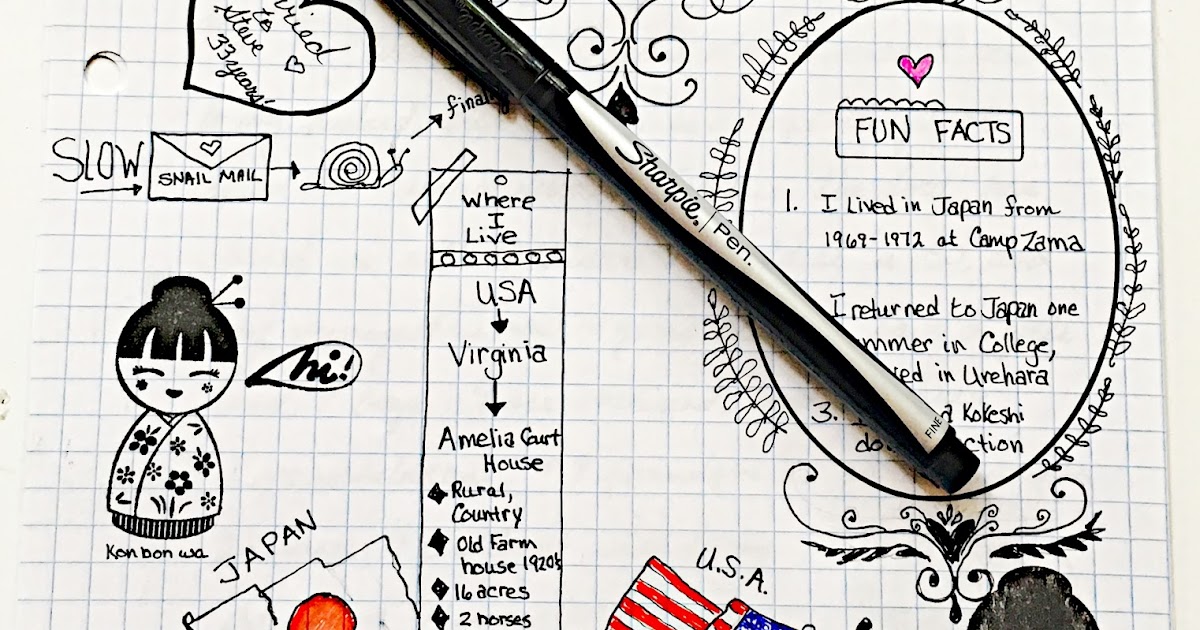 to
Steve
33 years!
SLOW
SNAIL MAIL
Where
I
Live
USA
Virginia
Amelia Court
House
Rural,
Country
Old Farm
house 1920's
16 acres
2 horses
hi!
Kon bon wa
JAPAN
U.S.A.
Sharpie. Pen.
FINE
FUN FACTS
1. I Lived in Japan from
1969-1972 at Camp Zama
I returned to Japan one
in College,
in Urehara
3. a Kokeshi